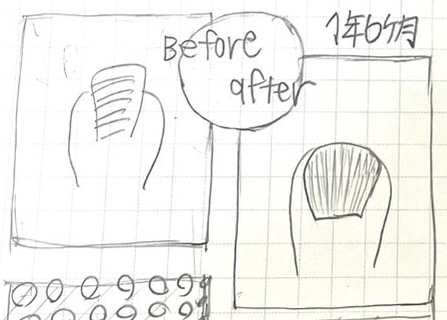 Before
after
1年6ヶ月